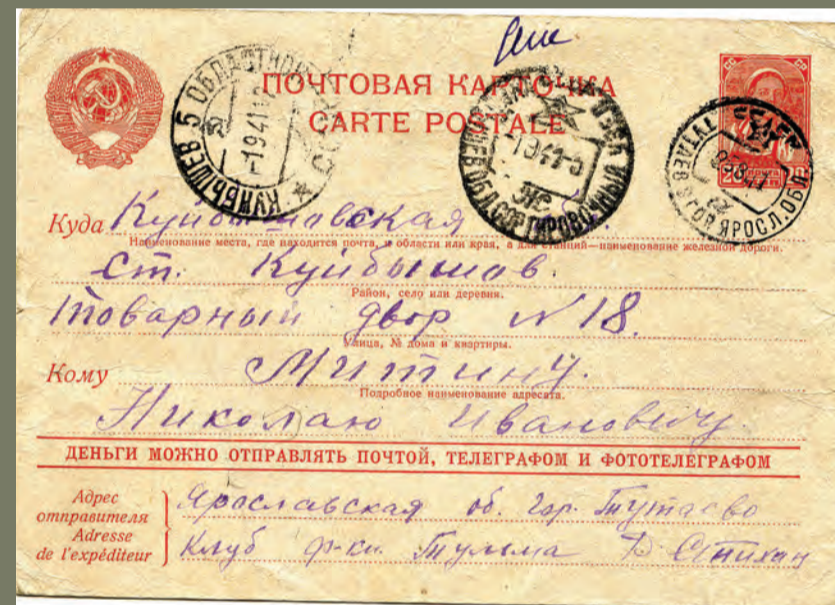 ПОЧТОВАЯ КАРТОЧКА
CARTE POSTALE
КУЙБЫШЕВ 5 ОБЛАСТНОЙ
-1941
СОРТИРОВОЧНЫЙ
ЯРОСЛ.ОБЛ.
20 20
Куда Куйбышавская
Наименование места, где находится почта, и области или края, а для станций—наименование железной дороги.
ст. Куйбышав.
Район, село или деревня.
Товарный двор N 18.
Улица, № дома и квартиры.
Кому Митину.
Подробное наименование адресата.
Николаю Ивановичу
ДЕНЬГИ МОЖНО ОТПРАВЛЯТЬ ПОЧТОЙ, ТЕЛЕГРАФОМ И ФОТОТЕЛЕГРАФОМ
Адрес отправителя Ярославская об. гор. Тутаево
Adresse de l'expéditeur Клуб ф-ки. Тульма